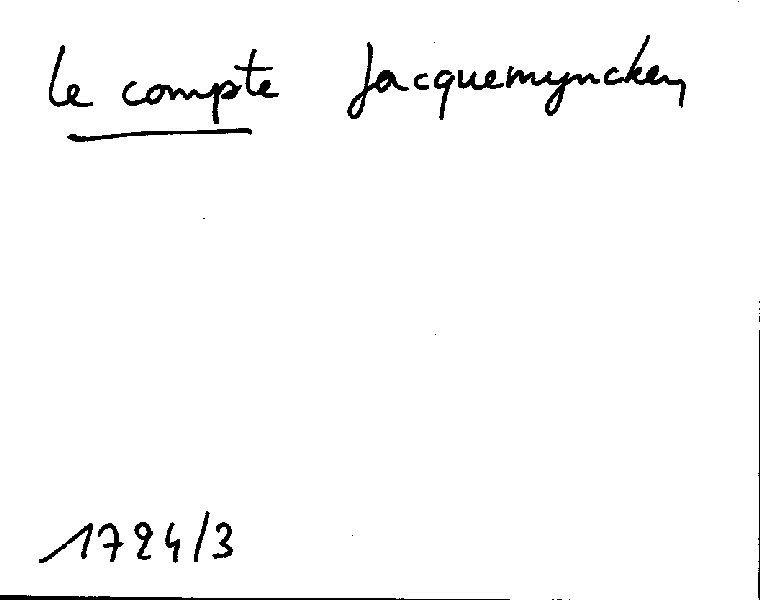 le compte Jacquemyncken
1724/3